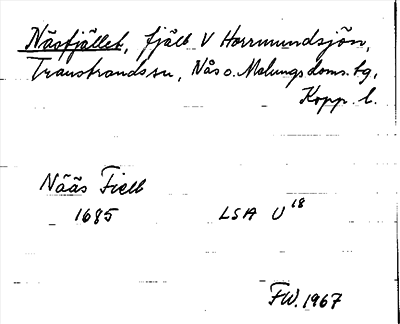 Näsfjället, fjäll V Horrmundsjön,
Transtrands sn, Nås o. Malungs doms. tg,
Kopp. l.
Nääs Fiell
1685 LSA U 18
FW. 1967